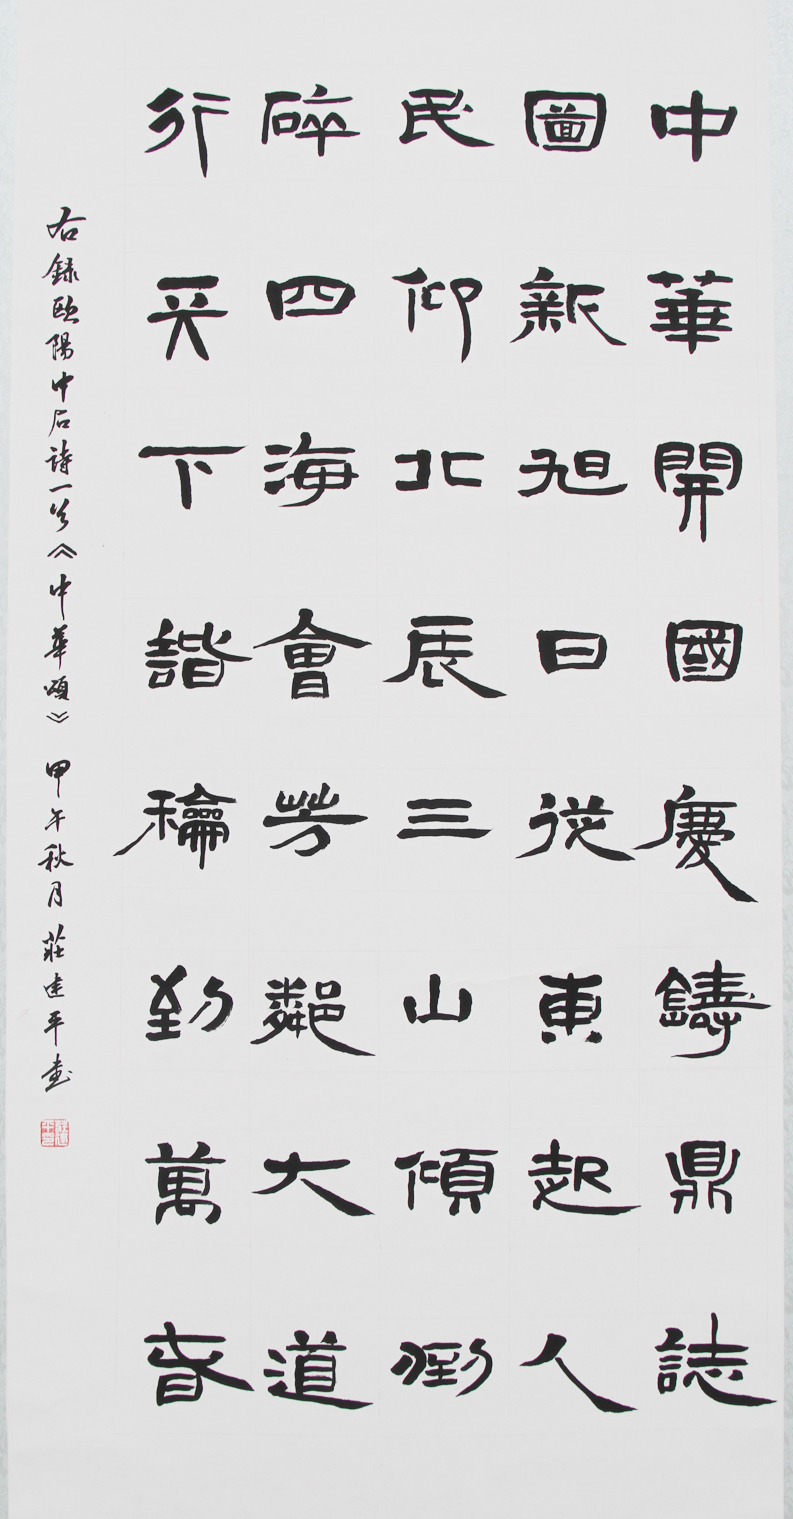 中華開國慶鑄鼎誌
圖新旭日從東起人
民仰北辰三山傾倒
碎四海會芳鄰大道
行天下諧龢到萬春
右錄歐陽中石詩一首《中華頌》 甲午秋月 莊建平書